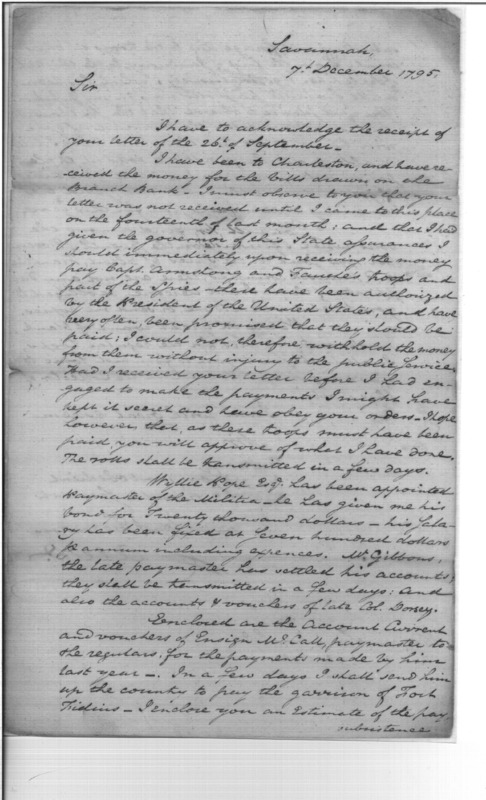 Savannah,
7th December 1795.
Sir
I have to acknowledge the receipt of
your letter of the 26th of September-
I have been to Charleston, and have re-
ceived the money for the bills drawn on the
Branch Bank - I must observe to you that your
letter was not received until I came to this place
on the fourteenth of last month; and that I had
given the governor of this State assurances I
should immediately upon receiving the money
pay Capt. Armstong and Fauche's troops and
part of the Spies - these have been authorized
by the President of the United States, and have
very often, been promised that they should be
paid; I could not, therefore withhold the money
from them without injury to the public service.
Had I received your letter before I had en-
gaged to make the payments I might have
kept it secret and have obey your orders - I hope
however, that, as these troops must have been
paid, you will approve of what I have done,
The rolls shall be transmitted in a few days.
Wyllie Pope Esqr. has been appointed
Paymaster of the Militia - he has given me his
bond for Twenty thousand dollars - his Sala-
ry has been fixed at Seven hundred dollars
annum including expences. Mr. Gibbons,
the late paymaster has settled his accounts;
they shall be transmitted in a few days: And
also the accounts & vouchers of late Col. Dorsey.
Enclosed are the Account Current
and vouchers of Ensign Mc.Call, paymaster to
the regulars. for the payments made by him
last year -. In a few days I shall send him
up the country to pay the garrison of Fort
Fidius - I enclose you an Estimate of the pay
subsistence